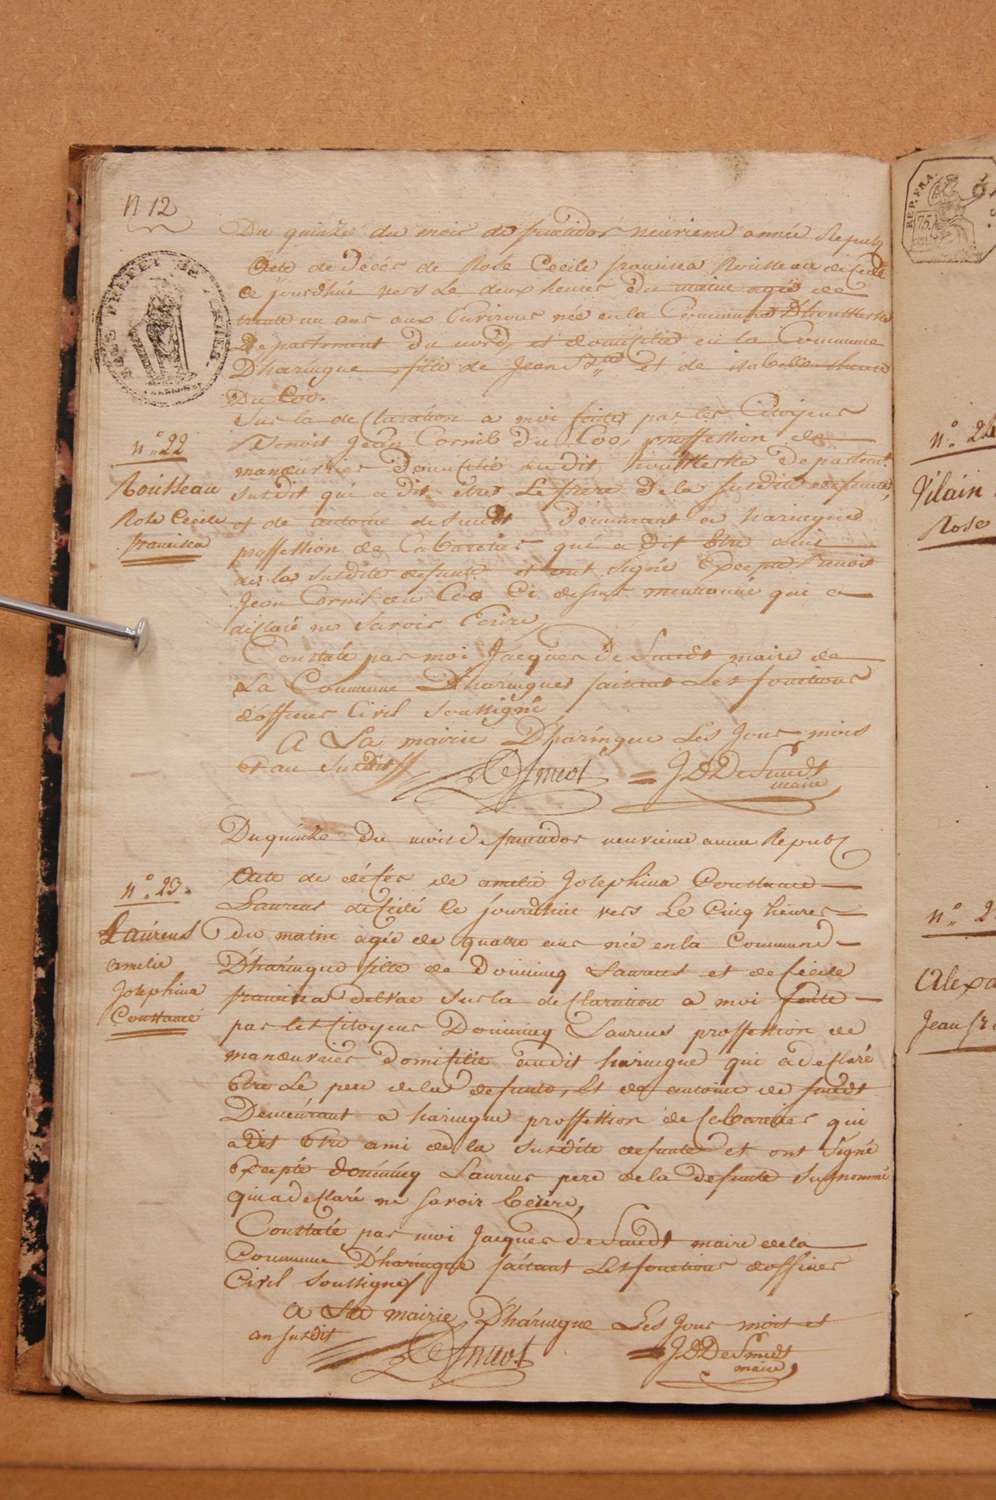 N 12
Du quinze du mois de fructidor neuvieme année Republ
Acte de Décés de Rose Cecile francisca Rousseau decedé
ce jourdhui vers Le deux heures Du matin agée de
trente un ans aux Environs née en la Commune
Departement Du nord, et domicilié en la Commune
D'haringue fille de Jean et de isabelle
Du Coo.
Sur la declaration a moi faite par les Citoyens
Benoit Jean Cornil Du Coo, proffession de
manœuvrier Domicilié audit Departemt
susdit qui a dit être Le frere De la susdite defunte,
et de antoine de Smedt Demeurant a haringue
proffession de Cabaretier qui a dit être ami
de la susdite defunte et ont signé Excepté Benoit
Jean Cornil du Coo Ci dessus mentionné qui a
declaré ne savoir Ecrire,
Constaté par moi Jacques De Smedt maire de
La Commune D'haringue faisant Les fonctions
d'officier Civil soussigné
A La mairie D'haringue Les Jour mois
et an susdit
J D DeSmedt
maire
n.o 22
Rousseau
Rose Cecile
francisca
Du quinze Du mois de fructidor neuvieme annee Republ
Acte de décés de amelie Josephina Constance
Laureus decedé le jourdhui vers Le Cinq heures
Du matin agée de quatre ans née en la Commune
D'haringue fille de Dominicq Laureus et de Cecile
francisca Delvae sur la declaration a moi faite
par les Citoyens Dominicq Laureus proffession de
manœuvrier Domicilié audit haringue qui a declaré
Etre Le pere dela defunte, et de antoine de smedt
Demeurant a haringue proffession de Cabaretier qui
a dit être ami de la susdite defunte et ont signé
Excepté dominicq Laureus pere de la defunte susnommé
qui a declaré ne savoir Ecrire,
Constaté par moi Jacques de Smedt maire de la
Commune D'haringue faisant Les fonctions d'officier
Civil soussigné
A La mairie D'haringue Les Jour mois et
an susdit
J D DeSmedt
maire
n.o 23.
Laureus
amelie
Josephina
Constance
REP. FRA.
75
Vilain
Rose